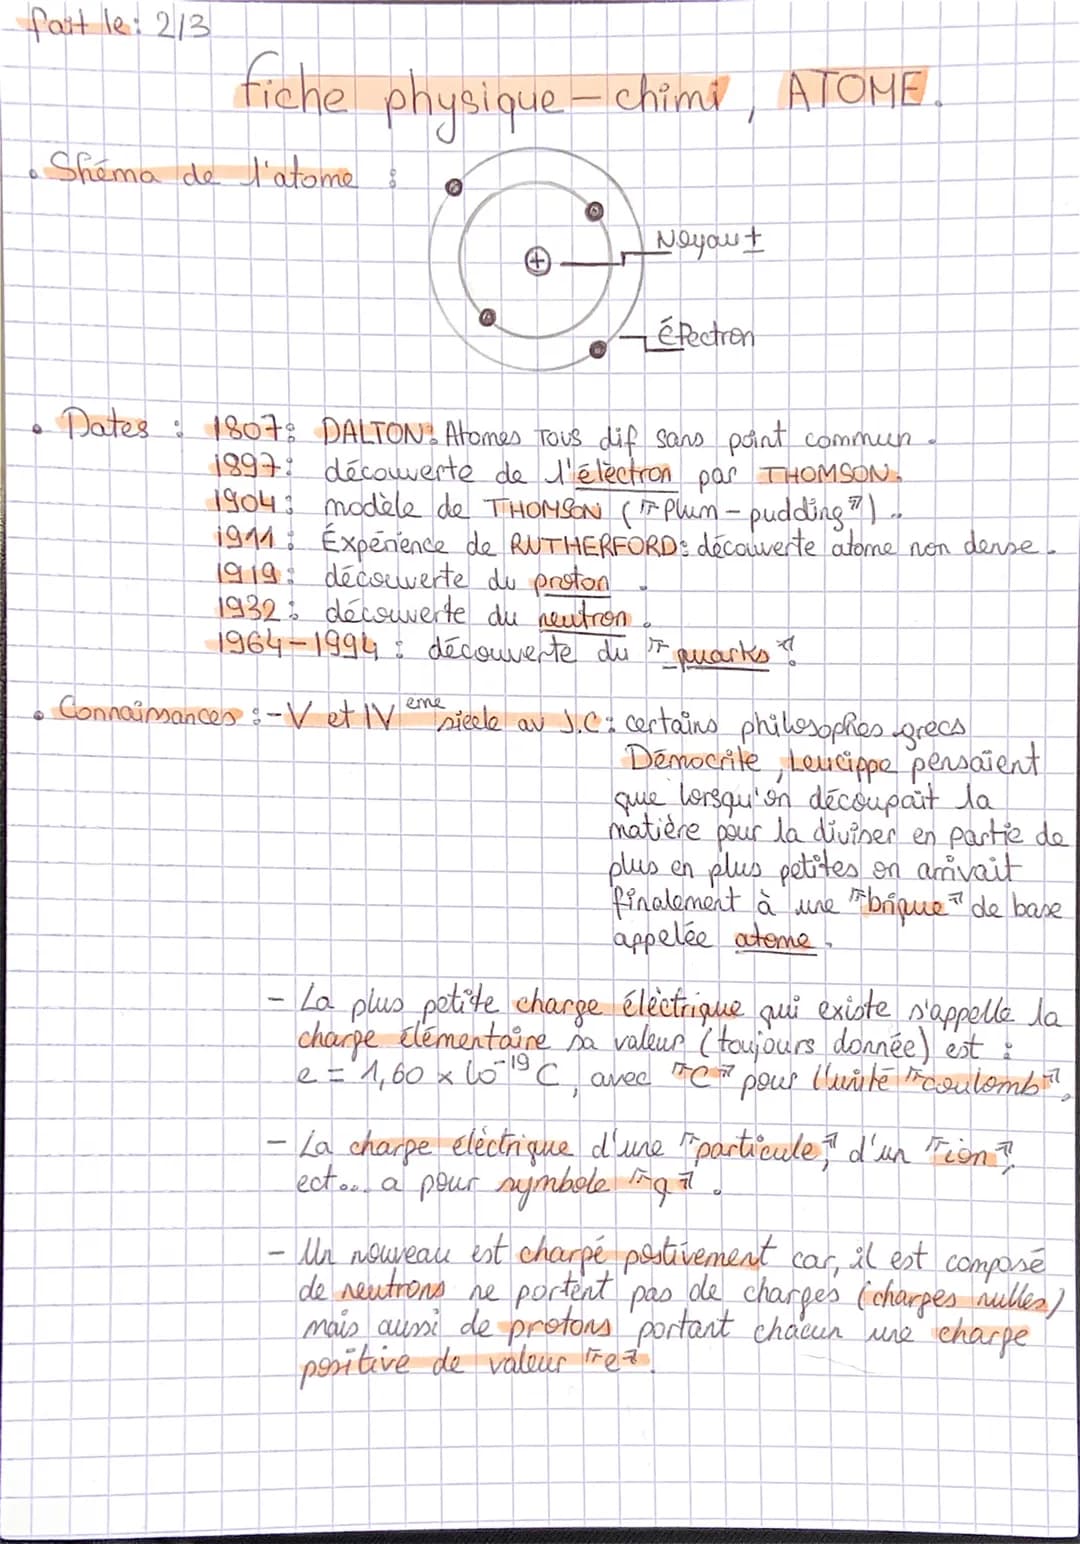 fait le: 2/3
fiche physique-chimi, ATOME.
• Shéma de l'atome :
+
Noyau +
électron
• Dates : 1807: DALTON: Atomes Tous dif sans point commun.
1897: découverte de l'élèctron par THOMSON.
1904: modèle de THOMSON ("Plum-pudding").
1911: Éxpérience de RUTHERFORD: découverte atome non dense.
1919: découverte du proton.
1932: découverte du neutron.
1964-1994: découverte du "quarks".
• Connaissances :- V et IV eme sieele av J.C: certains philosophes grecs
Démocrite, Leucippe pensaient
que lorsqu'on découpait la
matière pour la diviser en partie de
plus en plus petites on arrivait
finalement à une "brique" de base
appelée atome.
- La plus petite charge élèctrique qui existe s'appelle la
charge élémentaire sa valeur (toujours donnée) est :
e = 1,60 x 10⁻¹⁹ C, avec "C" pour l'unité "coulomb",
- La charge eléctrique d'une "particule", d'un "ion",
ect... a pour symbole "q".
- Un nouveau est chargé postivement car, il est composé
de neutrons ne portent pas de charges (charges nulles)
mais aussi de protons portant chacun une charge
positive de valeur "e".